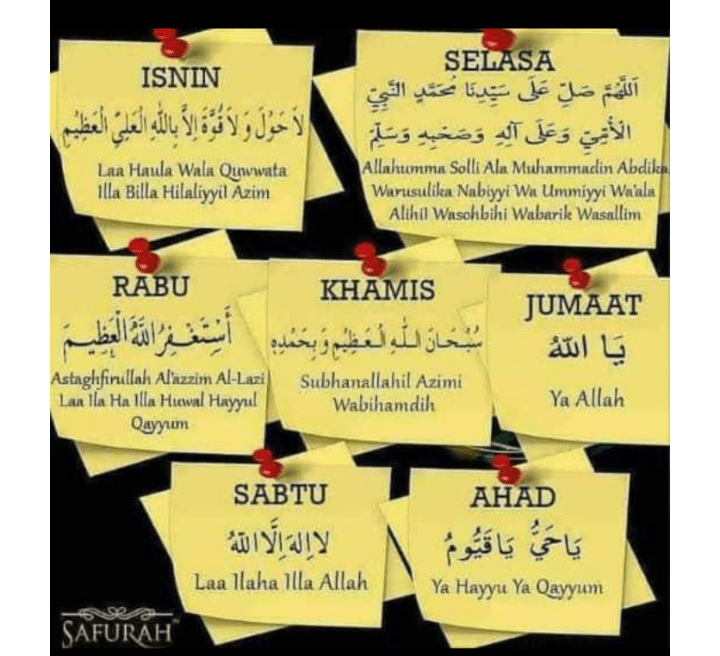 ISNIN
لَا حَوْلَ وَلَا قُوَّةَ إِلَّا بِاللَّهِ الْعَلِيِّ الْعَظِيْمِ
Laa Haula Wala Quwwata
Illa Billa Hilaliyyil Azim
SELASA
اَللَّهُمَّ صَلِّ عَلَى سَيِّدِنَا مُحَمَّدٍ النَّبِيِّ
الْأُمِّيِّ وَعَلَى آلِهِ وَصَحْبِهِ وَسَلِّمْ
Allahumma Solli Ala Muhammadin Abdika
Warusulika Nabiyyi Wa Ummiyyi Wa'ala
Alihil Wasohbihi Wabarik Wasallim
RABU
أَسْتَغْفِرُ اللَّهَ الْعَظِيْمَ
Astaghfirullah Al'azzim Al-Lazi
Laa Ila Ha Illa Huwal Hayyul
Qayyum
KHAMIS
سُبْحَانَ اللَّهِ الْعَظِيْمِ وَبِحَمْدِهِ
Subhanallahil Azimi
Wabihamdih
JUMAAT
يَا اللَّهُ
Ya Allah
SABTU
لَا إِلَهَ إِلَّا اللَّهُ
Laa Ilaha Illa Allah
AHAD
يَا حَيُّ يَا قَيُّومُ
Ya Hayyu Ya Qayyum
SAFURAH